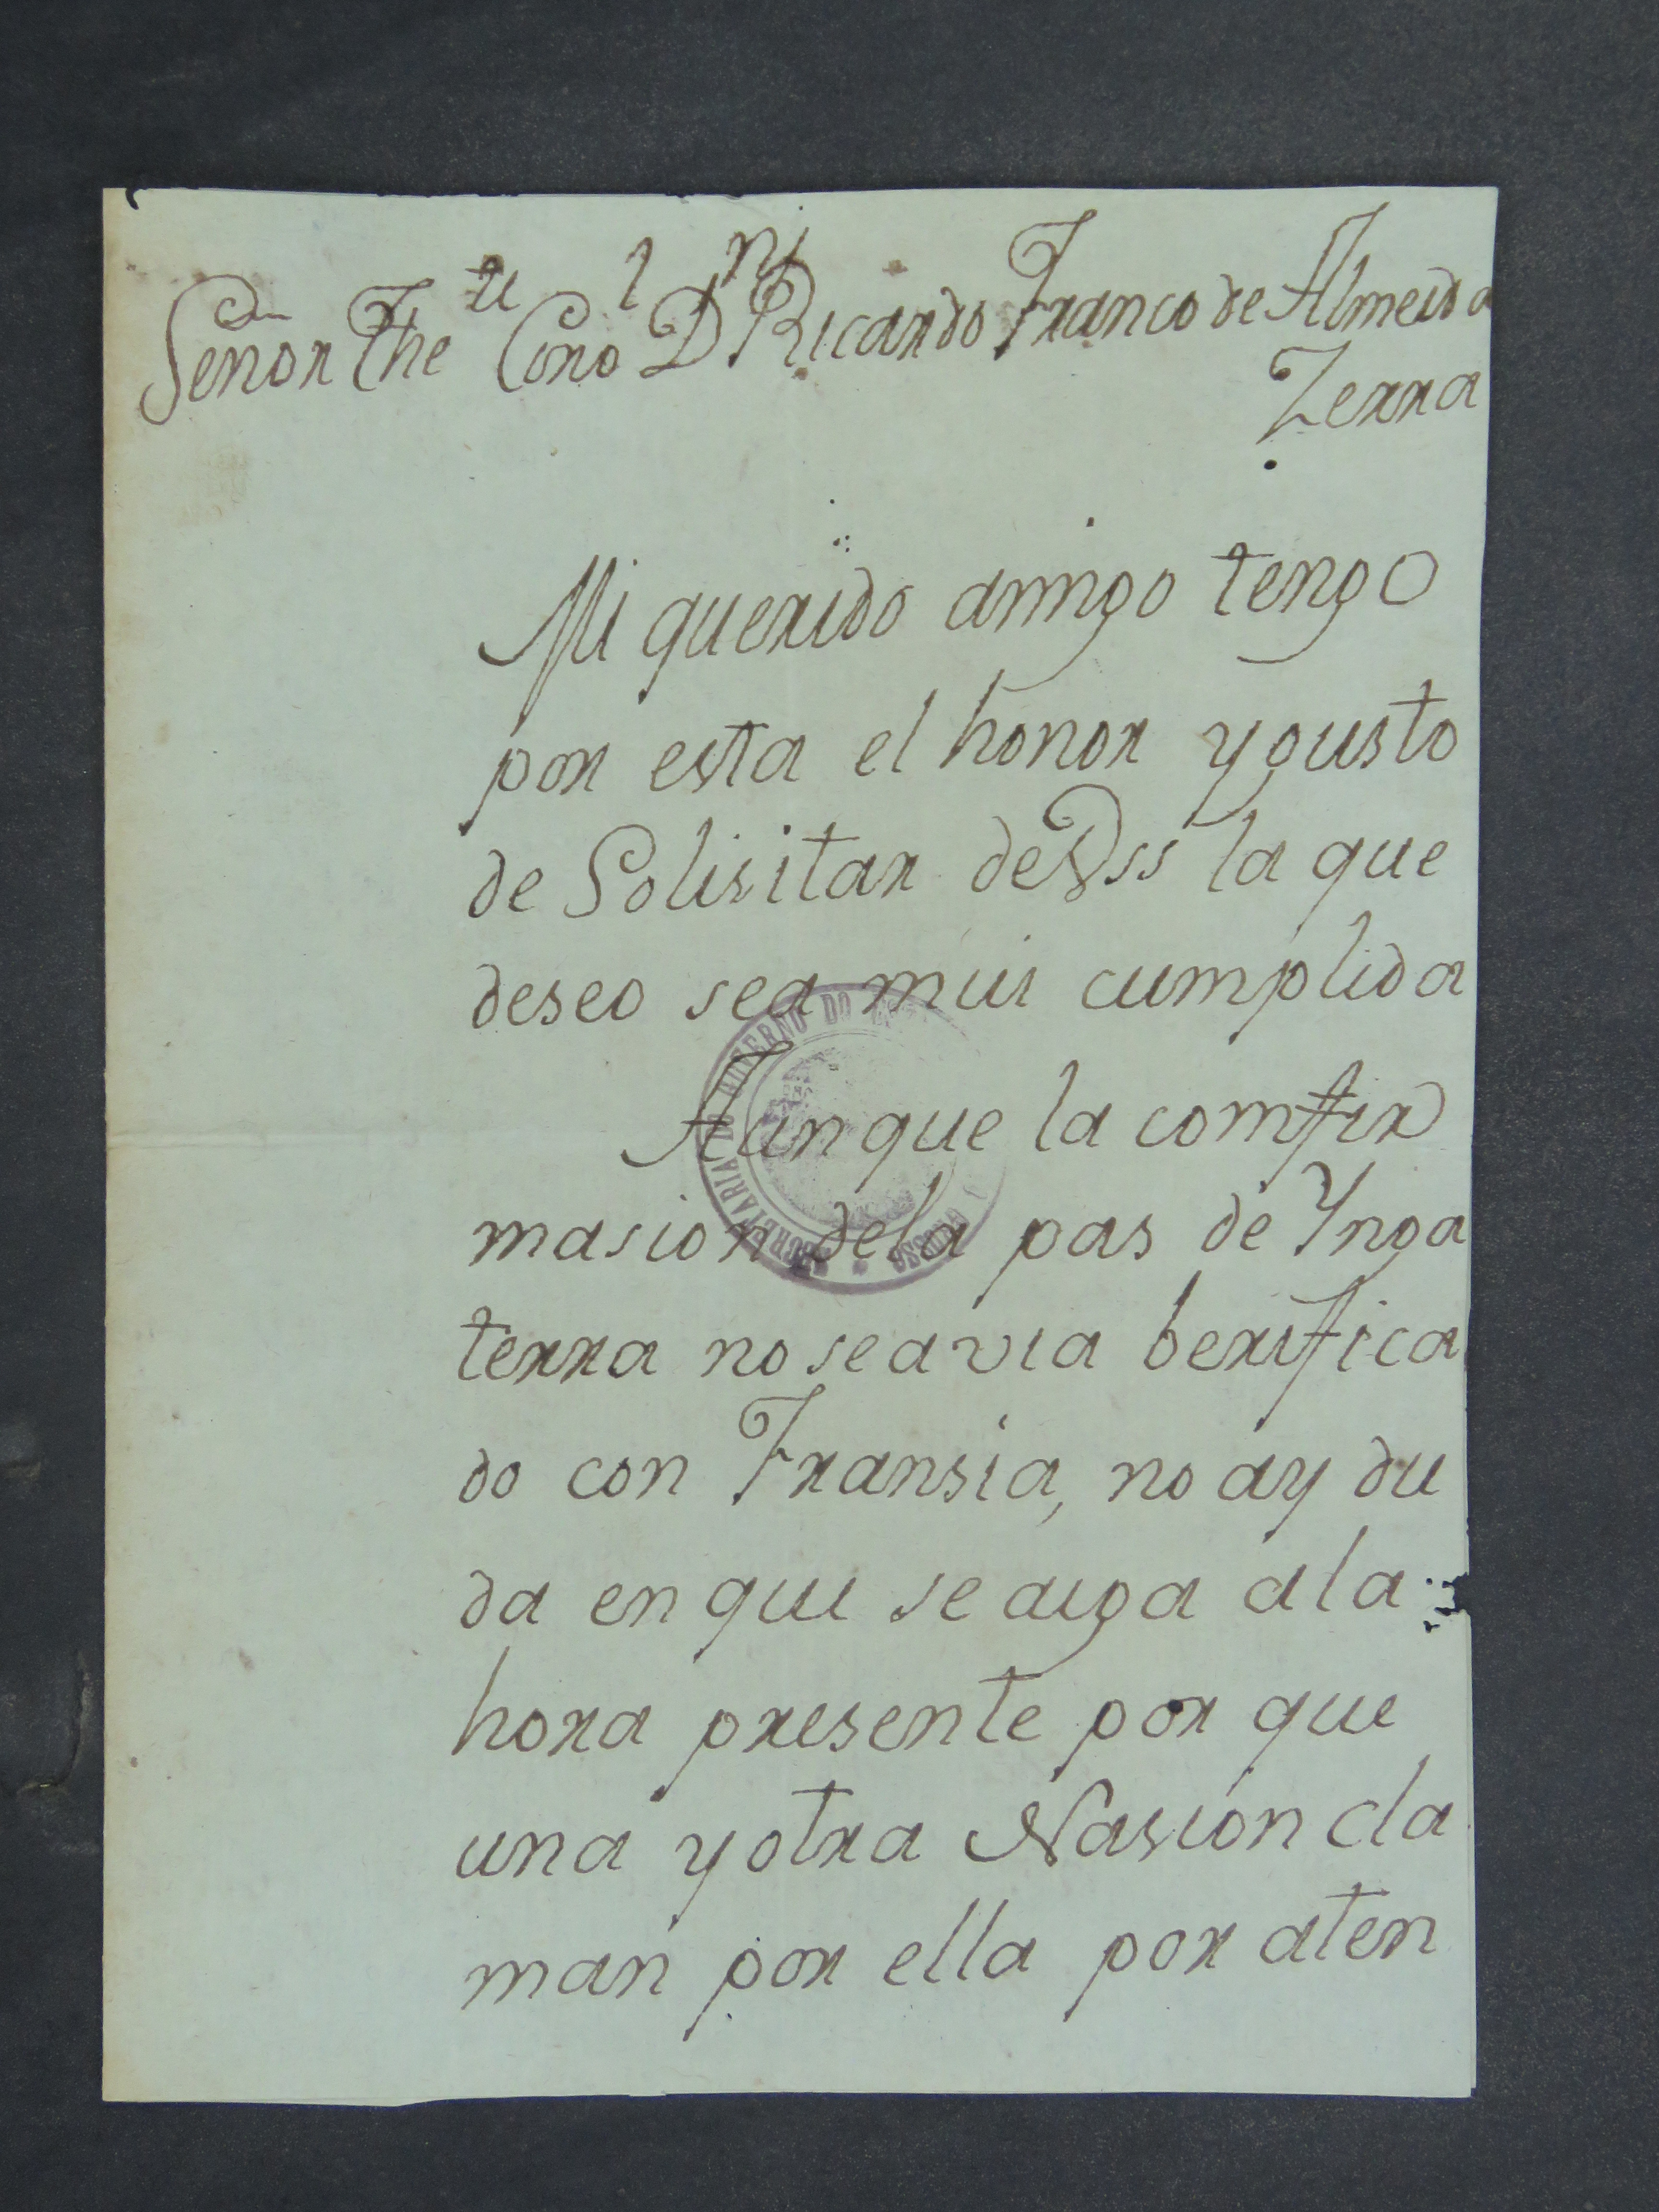 Señor The.te Coro.l D.n Ricardo Franco de Almeida
Zerra
Mi querido amigo tengo
por esta el honor y gusto
de Solisitar de Vss la que
deseo sea mui cumplida
Aunque la comfir
masion dela pas de Ynga
terra no se avia berifica
do con Fransia, no ay du
da en qui se aiga a la
hora presente por que
una y otra Nasion cla
man por ella por aten
SECRETARIA DO GOVERNO DO
GROSSO